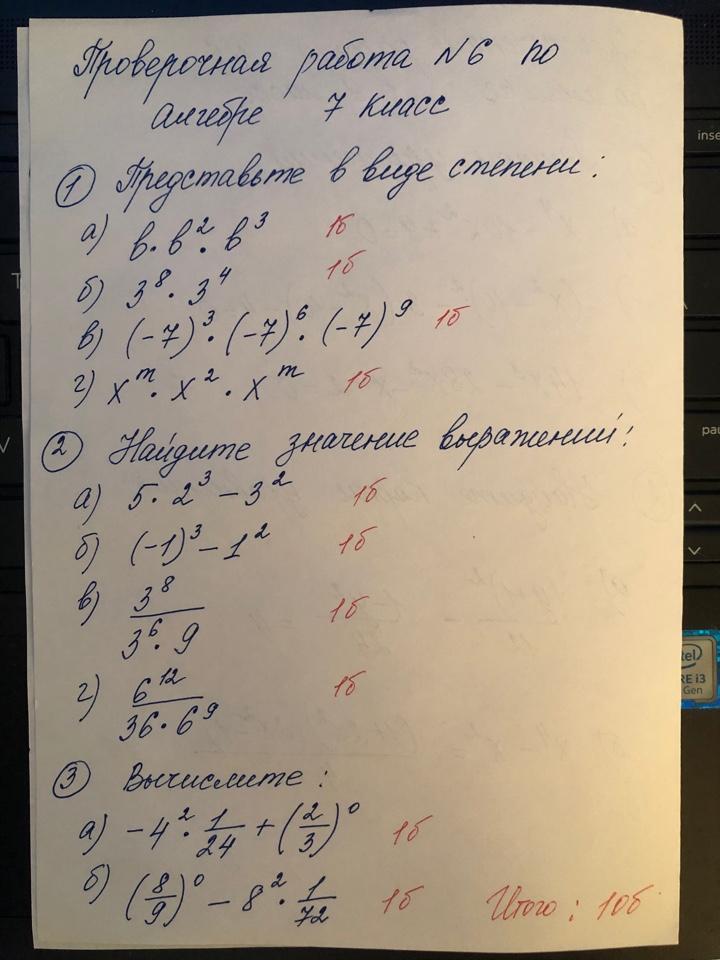 Проверочная работа N6 по
алгебре 7 класс
① Представьте в виде степени:
а) b · b² · b³ 1б
б) 3⁸ · 3⁴ 1б
в) (-7)³ · (-7)⁶ · (-7)⁹ 1б
г) xᵐ · x² · xᵐ 1б
② Найдите значение выражений:
а) 5 · 2³ - 3² 1б
б) (-1)³ - 1² 1б
в) 3⁸ / 3⁶ · 9 1б
г) 6¹² / 36 · 6⁹ 1б
③ Вычислите:
а) -4² · 1/24 + (2/3)⁰ 1б
б) (8/9)⁰ - 8² · 1/72 1б Итого: 10б
inse
pau
intel
RE i3
Gen